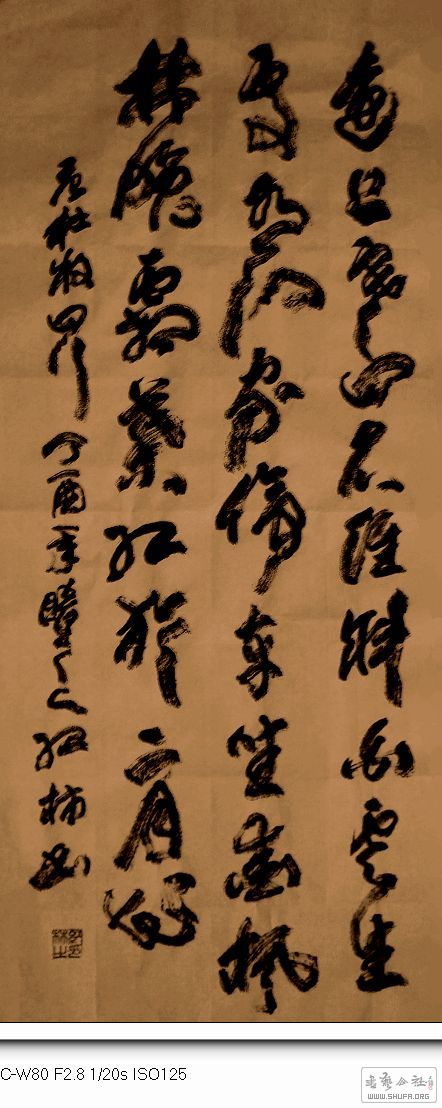 遠上寒山石徑斜白雲生
處有人家停車坐愛楓
林晚霜葉紅於二月花
唐杜牧山行 丁酉年 之 柿書
C-W80 F2.8 1/20s ISO125
公社
WWW.SHUFA.ORG